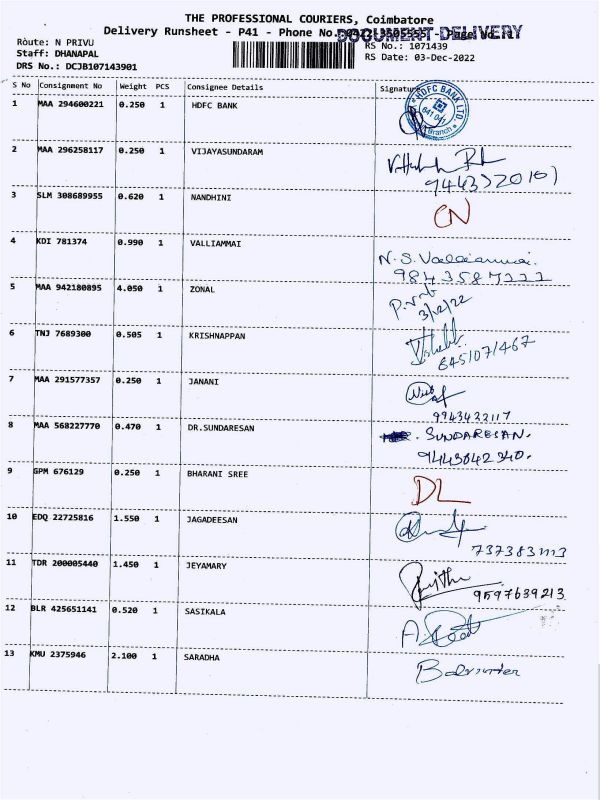 THE PROFESSIONAL COURIERS, Coimbatore
Delivery Runsheet - P41 - Phone No.
DOCUMENT DELIVERY
Route: N PRIVU
RS No.: 1071439
Staff: DHANAPAL
RS Date: 03-Dec-2022
DRS No.: DCJB107143901
S No Consignment No Weight PCS Consignee Details Signature
1 MAA 294600221 0.250 1 HDFC BANK
HDFC BANK LTD
Branch
2 MAA 296258117 0.250 1 VIJAYASUNDARAM
3 SLM 308689955 0.620 1 NANDHINI
CN
4 KDI 781374 0.990 1 VALLIAMMAI
N.S. Valliammai.
5 MAA 942180895 4.050 1 ZONAL
3/12/22
6 TNJ 7689300 0.505 1 KRISHNAPPAN
645107/467
7 MAA 291577357 0.250 1 JANANI
9943432117
8 MAA 568227770 0.470 1 DR.SUNDARESAN
SUNDARESAN.
9443042340.
9 GPM 676129 0.250 1 BHARANI SREE
DL
10 EDQ 22725816 1.550 1 JAGADEESAN
11 TDR 200005440 1.450 1 JEYAMARY
9597639213
12 BLR 425651141 0.520 1 SASIKALA
13 KMU 2375946 2.100 1 SARADHA